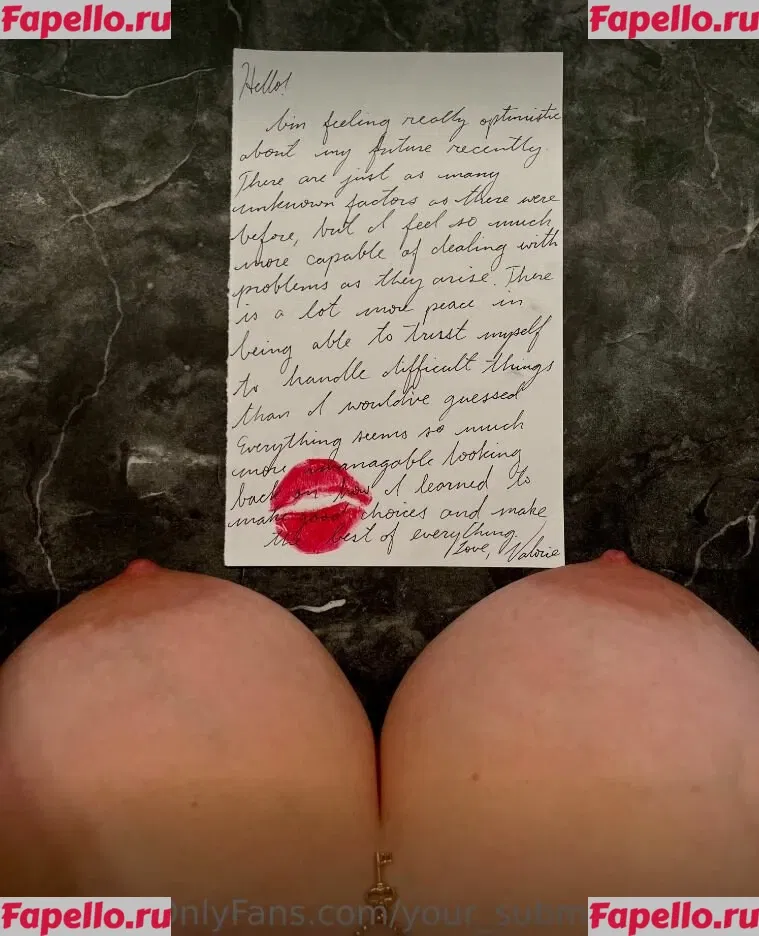 Fapello.ru
Fapello.ru
Hello!
I'm feeling really optimistic
about my future recently.
There are just as many
unknown factors as there were
before, but I feel so much
more capable of dealing with
problems as they arise. There
is a lot more peace in
being able to trust myself
to handle difficult things
than I would've guessed
Everything seems so much
more managable looking
back on how I learned to
make good choices and make
the best of everything.
Love, Valorie
Fapello.ru
OnlyFans.com/your_subm
Fapello.ru